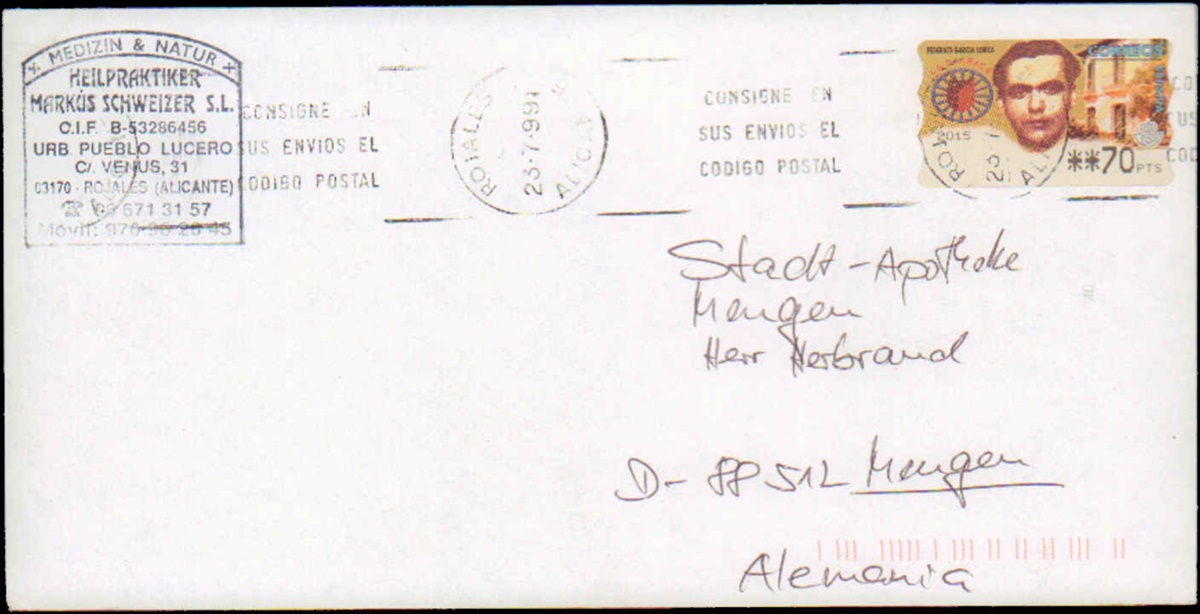 MEDIZIN & NATUR
HEILPRAKTIKER
MARKUS SCHWEIZER S.L.
C.I.F. B-53286456
URB. PUEBLO LUCERO
C/. VENUS, 31
03170 - ROJALES (ALICANTE)
671 31 57
Movil:
CONSIGNE EN
SUS ENVIOS EL
CODIGO POSTAL
ROJALES
23-7-99
ALICAN
CONSIGNE EN
SUS ENVIOS EL
CODIGO POSTAL
FEDERICO GARCIA LORCA
CORREOS
2015
**70 PTS
Stadt-Apotheke
Mengen
Herr Herbrand
D-88512 Mengen
Alemania